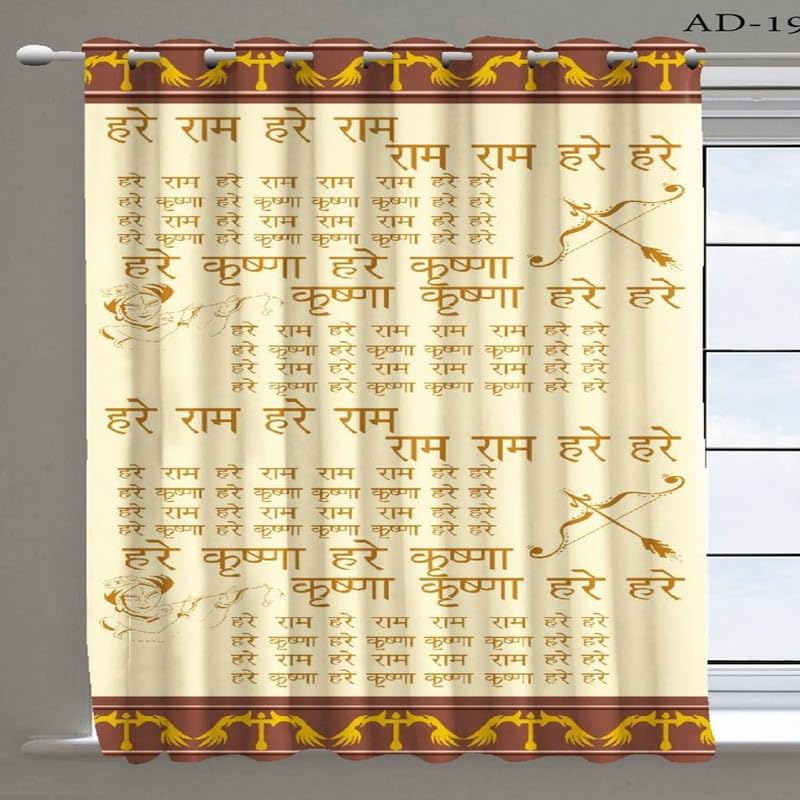 AD-19
हरे राम हरे राम
राम राम हरे हरे
हरे राम हरे राम राम राम हरे हरे
हरे कृष्णा हरे कृष्णा कृष्णा कृष्णा हरे हरे
हरे राम हरे राम राम राम हरे हरे
हरे कृष्णा हरे कृष्णा कृष्णा कृष्णा हरे हरे
हरे कृष्णा हरे कृष्णा
कृष्णा कृष्णा हरे हरे
हरे राम हरे राम राम राम हरे हरे
हरे कृष्णा हरे कृष्णा कृष्णा कृष्णा हरे हरे
हरे राम हरे राम राम राम हरे हरे
हरे कृष्णा हरे कृष्णा कृष्णा कृष्णा हरे हरे
हरे राम हरे राम
राम राम हरे हरे
हरे राम हरे राम राम राम हरे हरे
हरे कृष्णा हरे कृष्णा कृष्णा कृष्णा हरे हरे
हरे राम हरे राम राम राम हरे हरे
हरे कृष्णा हरे कृष्णा कृष्णा कृष्णा हरे हरे
हरे कृष्णा हरे कृष्णा
कृष्णा कृष्णा हरे हरे
हरे राम हरे राम राम राम हरे हरे
हरे कृष्णा हरे कृष्णा कृष्णा कृष्णा हरे हरे
हरे राम हरे राम राम राम हरे हरे
हरे कृष्णा हरे कृष्णा कृष्णा कृष्णा हरे हरे